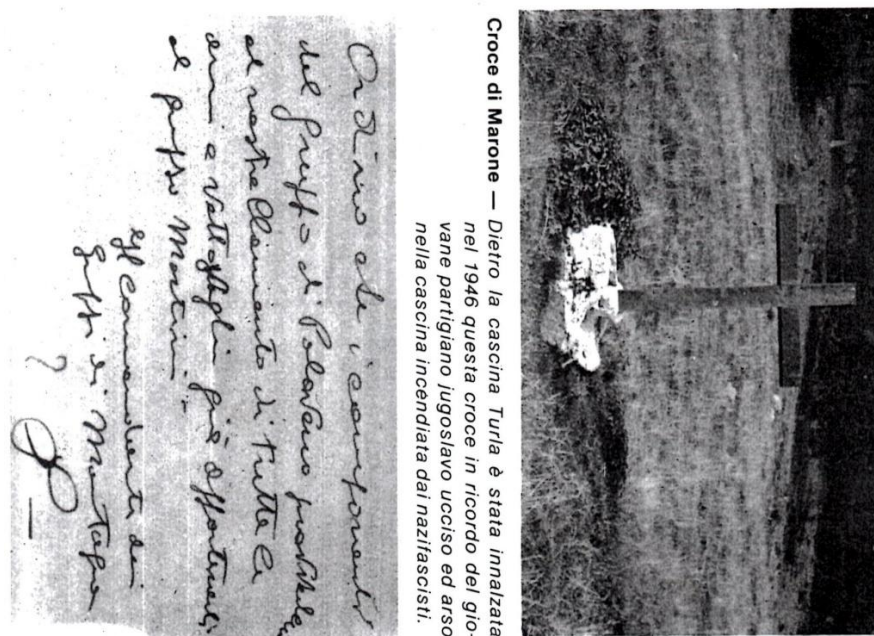 Croce di Marone — Dietro la cascina Turla è stata innalzata
nel 1946 questa croce in ricordo del gio-
vane partigiano jugoslavo ucciso ed arso
nella cascina incendiata dai nazifascisti.
Ordino che i componenti
del gruppo di Polaveno
al nostro Clemente di tutte le
armi e vettovagli già appartenenti
al gruppo Martini.
Il Comandante dei
gruppi di Montagna
?